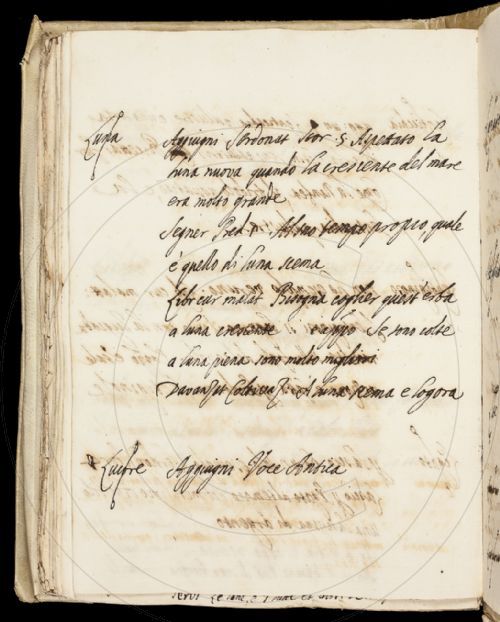 Luna Aggiugni Serdonat Stor 5 Aspettato la
luna nuova quando la cresciente del mare
era molto grande
Segner Pred Al suo tempo proprio quale
è quello di luna scema
Libr cur malat Bisogna coglier quest'erba
a luna cresciente e appo Se sono colte
a luna piena sono molto migliori
Davanzat Coltivaz A luna scema e logora
Aggiugni Voce Antica